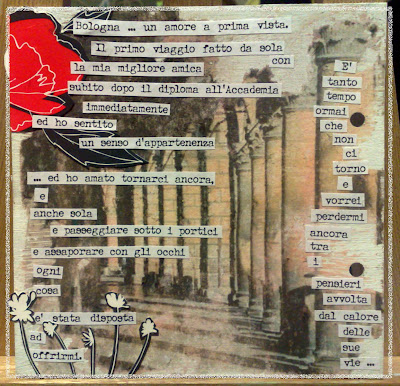 Bologna ... un amore a prima vista.
Il primo viaggio fatto da sola
con
la mia migliore amica
subito dopo il diploma all'Accademia
immediatamente
ed ho sentito
un senso d'appartenenza
... ed ho amato tornarci ancora,
e
anche sola
e passeggiare sotto i portici
e assaporare con gli occhi
ogni
cosa
e' stata disposta
ad
offrirmi.
E'
tanto
tempo
ormai
che
non
ci
torno
e
vorrei
perdermi
ancora
tra
i
pensieri
avvolta
dal calore
delle
sue
vie ...